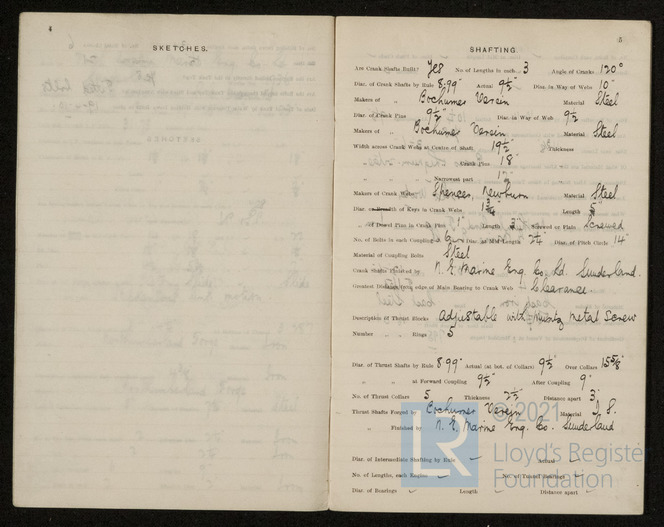 4
SKETCHES.
5
SHAFTING
Are Crank Shafts Built? Yes No. of Lengths in each 3 Angle of Cranks 120°
Diar. of Crank Shafts by Rule 8.99" Actual 9½" Diar. in Way of Webs 10"
Makers of " Bochumer Verein Material Steel
Diar. of Crank Pins 9½" Diar. in Way of Web 9½
Makers of " Bochumer Verein Material Steel
Width across Crank Webs at Centre of Shaft 19½" Thickness
" " " Crank Pins 18"
" " " Narrowest part
Makers of Crank Webs Spencer, Newburn Material Steel
Diar. or Breadth of Keys in Crank Webs Length 5"
" of Dowel Pins in Crank Pins 1" Length 3" Screwed or Plain Screwed
No. of Bolts in each Coupling 6 Diar. at Mid Length 2¼" Diar. of Pitch Circle 14"
Material of Coupling Bolts Steel
Crank Shafts Finished by N. E. Marine Eng. Co. Ld. Sunderland.
Greatest Distance from edge of Main Bearing to Crank Web Clearance
Description of Thrust Blocks Adjustable with Muntz Metal Screw
Number " Rings 5
Diar. of Thrust Shafts by Rule 8.99" Actual (at bot. of Collars) 9½" Over Collars 15⅝"
" " " at Forward Coupling 9½" After Coupling 9"
No. of Thrust Collars 5 Thickness 2½" Distance apart 3"
Thrust Shafts Forged by Bochumer Verein Material I. S.
" Finished by N. E. Marine Eng. Co. Sunderland
Diar. of Intermediate Shafting by Rule Actual
No. of Lengths, each Engine No. of Tunnel Bearings
Diar. of Bearings Length Distance apart
© 2021
LR
Lloyd's Register
Foundation